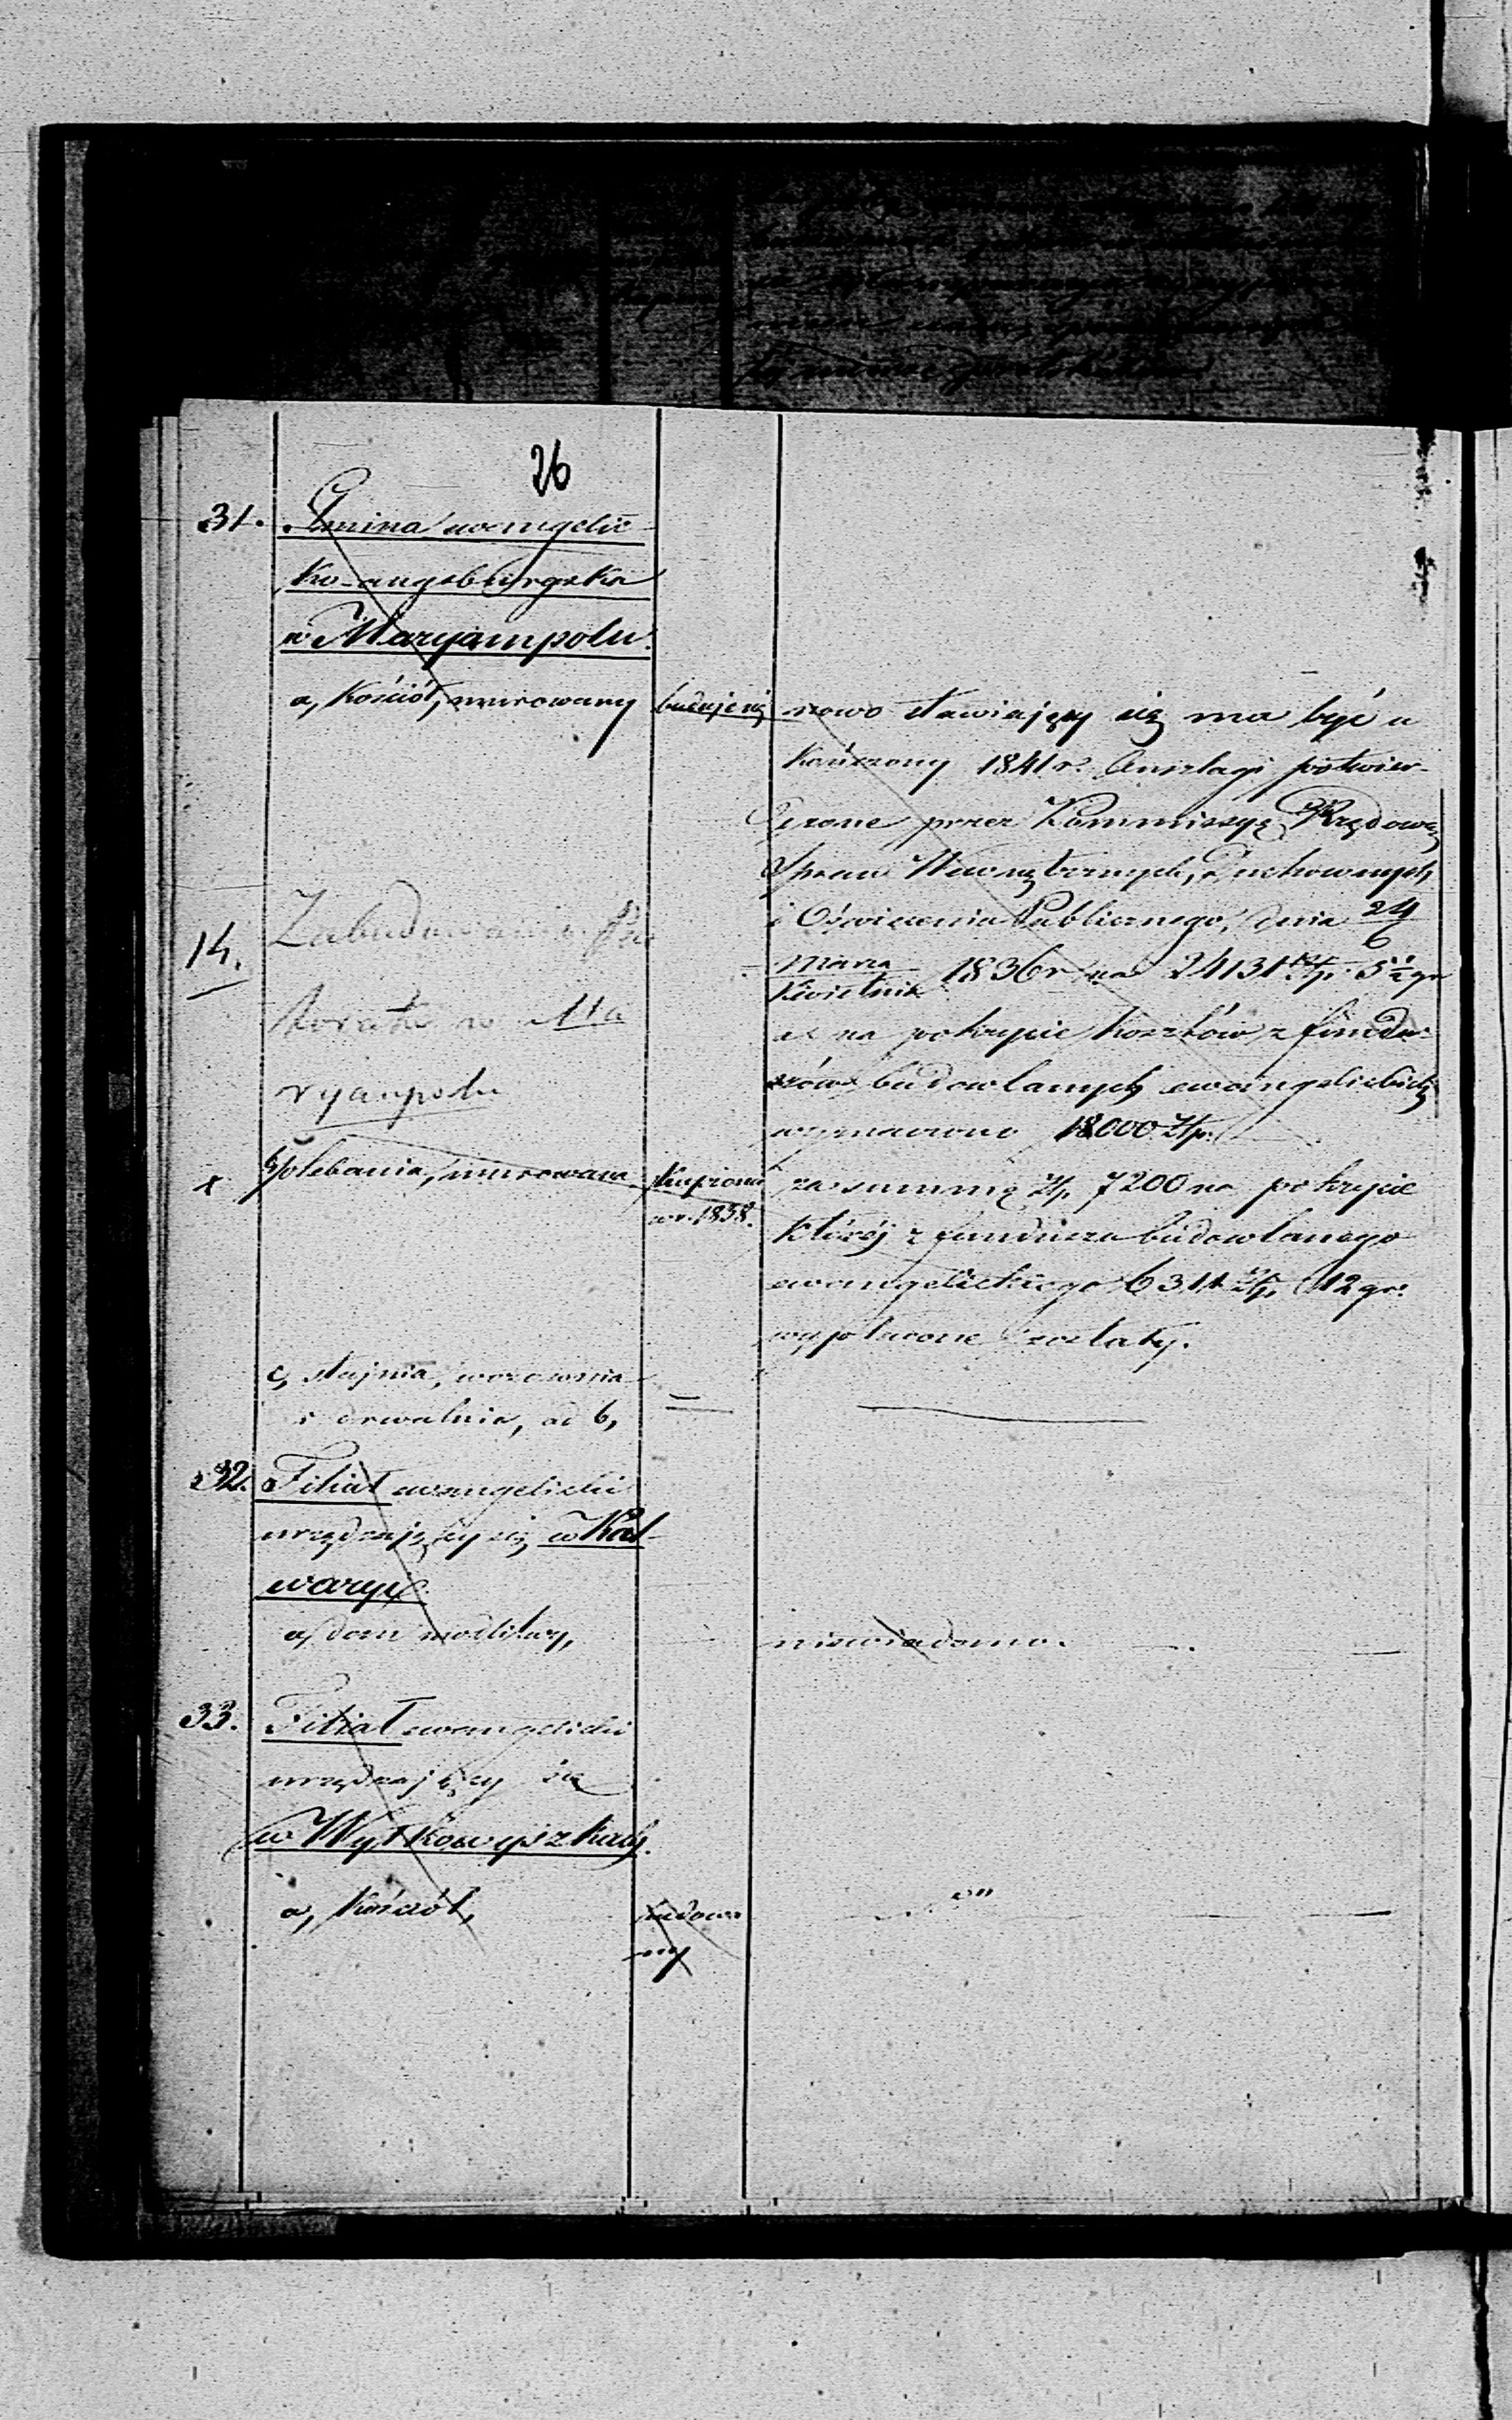 26
31. Gmina ewangelic-
ko-augsburgska
w Maryampolu.
a, Kościół, murowany
buduje się
nowo stawiający się ma być u
kończony 1841 r. Anszlagi potwier-
dzone przez Kommissyę Rządową
Spraw Wewnętrznych, Duchownych
i Oświecenia Publicznego, dnia 24/6
Marca/Kwietnia 1836 r. na 24131 Złp. 5½ gr
a na pokrycie kosztów z fundu-
szów budowlanych ewangelickich
wyznaczono 18000 Złp.
14. Zabudowania Pa
storatu w Ma
ryampolu
x b, plebania, murowana
kupiona
w r. 1838.
za summę Złp. 7200 na pokrycie
której z funduszu budowlanego
ewangelickiego 6311 Złp. 12 gr.
wypłacone zostały.
c, stajnia, wozownia
i drwalnia, ad b,
=
32. Filiał ewangelicki
urządzający się w Kal-
waryi.
a, dom modlitwy,
niewiadomo.
33. Filiał ewangelicki
urządzający się
w Wyłkowyszkach.
a, Kościół,
budowa
ny